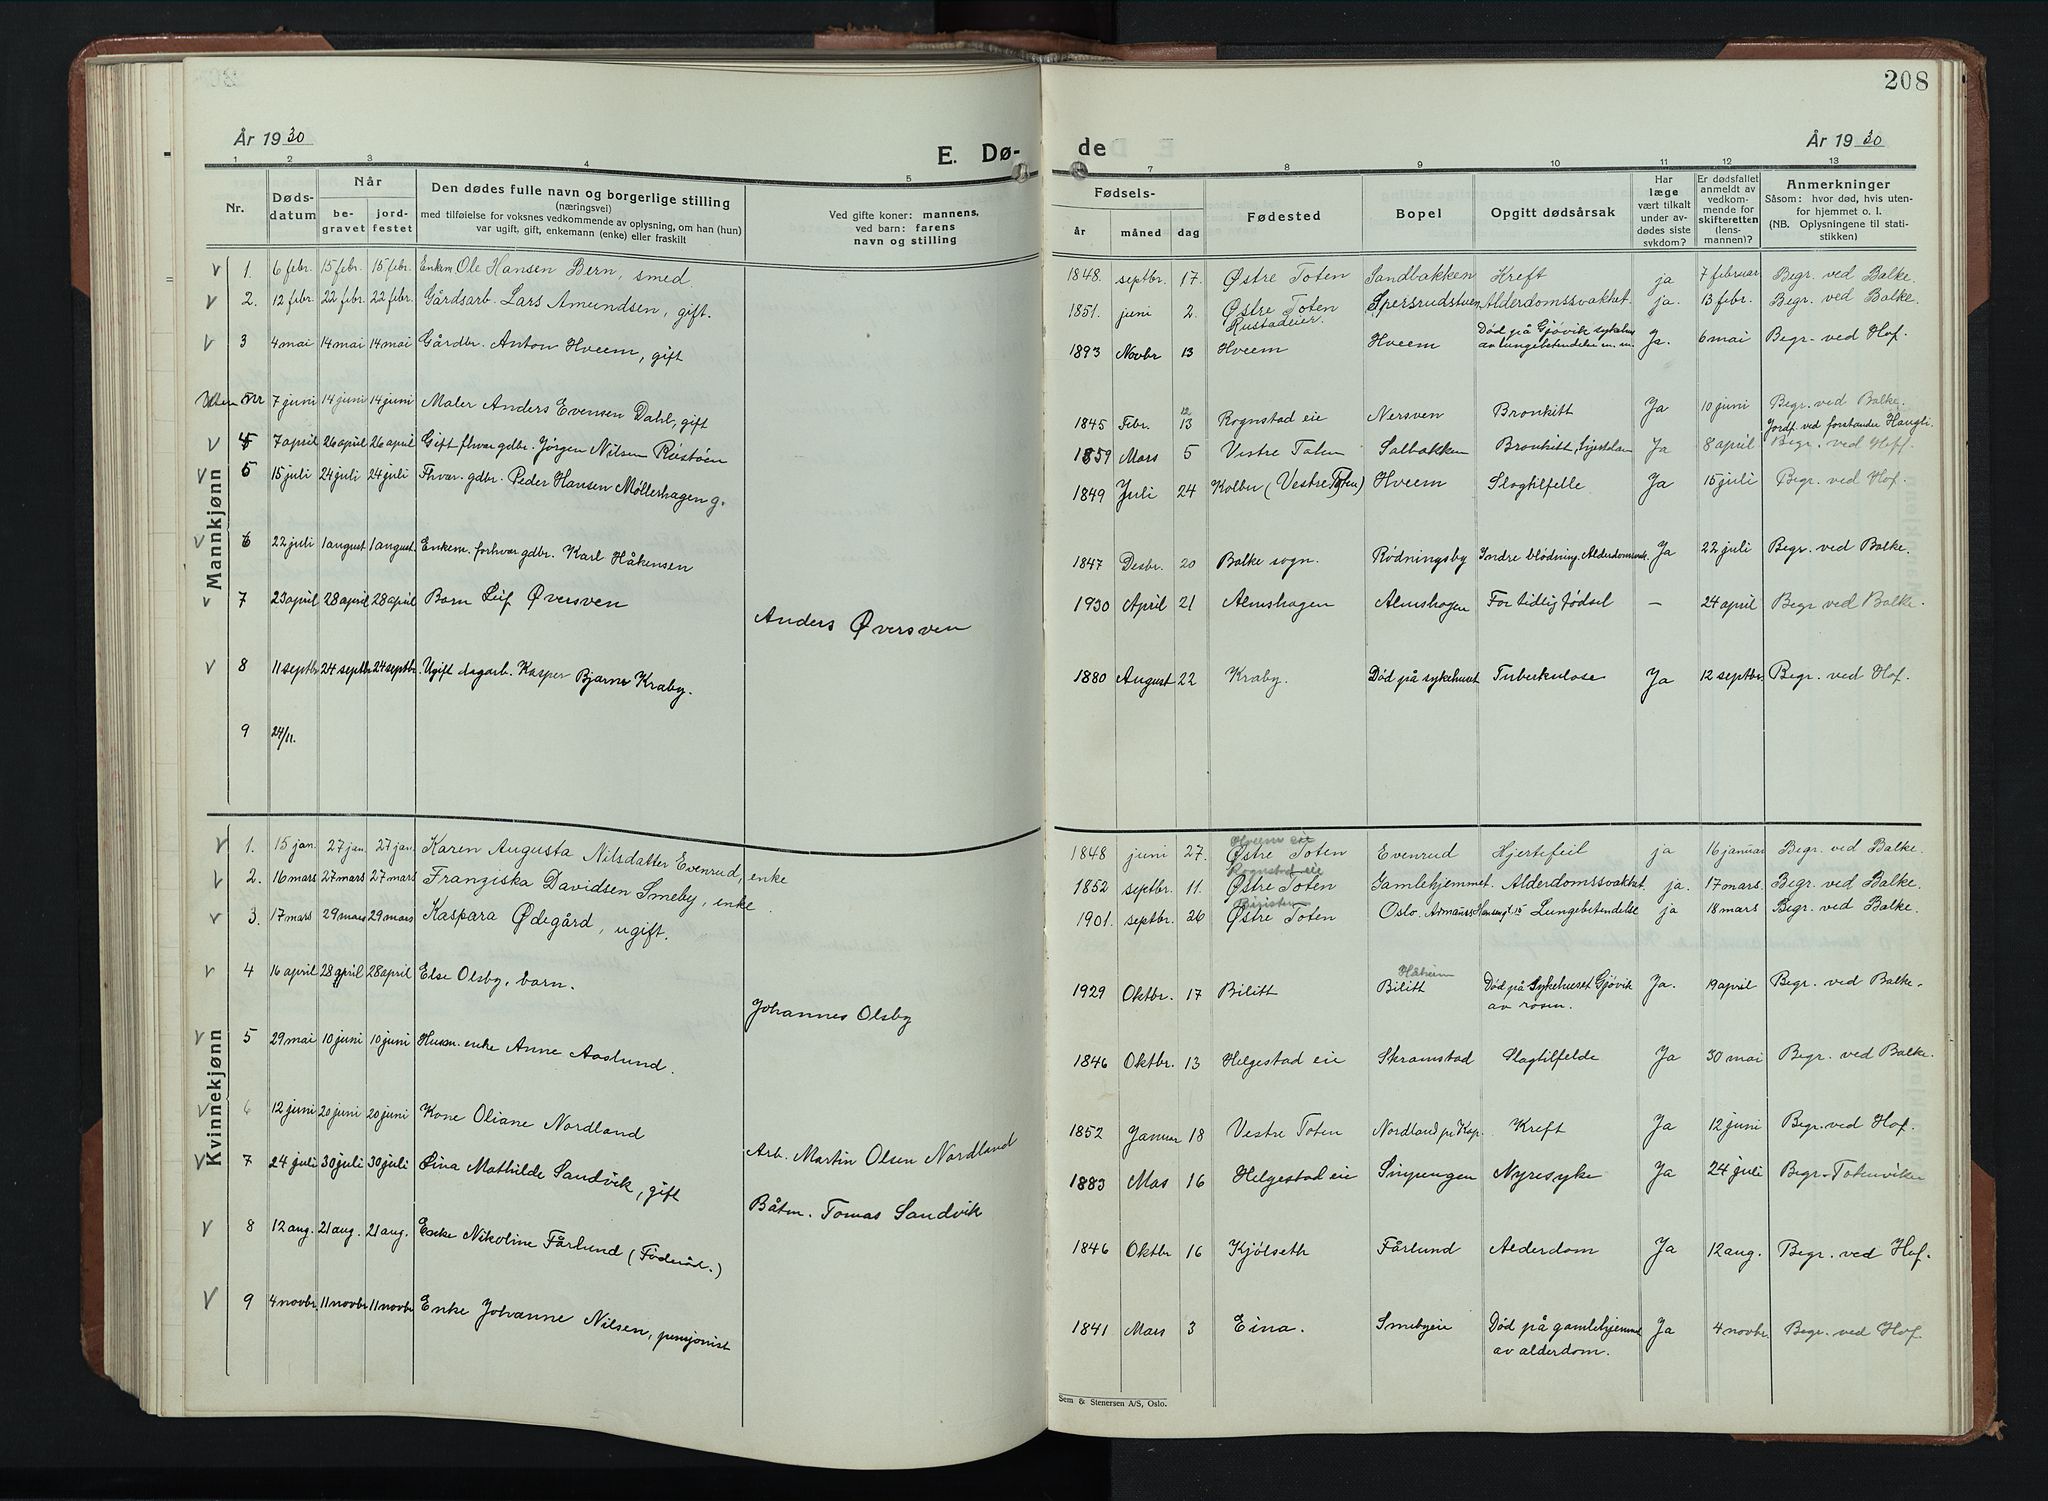 208
År 1930
E. Dø-
de
År 1930
1 2 3 4 5 7 8 9 10 11 12 13
Nr.
Dødsdatum
Når
begravet
jordfestet
Den dødes fulle navn og borgerlige stilling
(næringsvei)
med tilføielse for voksnes vedkommende av oplysning, om han (hun)
var ugift, gift, enkemann (enke) eller fraskilt
Ved gifte koner: mannens,
ved barn: farens
navn og stilling
Fødsels-
år måned dag
Fødested
Bopel
Opgitt dødsårsak
Har
læge
vært tilkalt
under avdødes
siste
sykdom?
Er dødsfallet
anmeldt av
vedkommende
for
skifteretten
(lensmannen)?
Anmerkninger
Såsom: hvor død, hvis utenfor
hjemmet o. l.
(NB. Oplysningene til statistikken)
Mannkjønn
1. 6 febr. 15 febr. 15 febr. Enkem Ole Hansen Bern, smed 1848. septbr. 17. Østre Toten Sandbakken Kreft ja 7 februar Begr. ved Balke.
2. 12 febr. 22 febr. 22 febr. Gårdsarb. Lars Amundsen, gift. 1851. juni 2. Østre Toten Rustadeier. Spersrudstuen Alderdomssvakhet. ja. 13 febr. Begr. ved Balke.
3 4 mai 14 mai 14 mai Gårdbr. Anton Hveem, gift 1893 Novbr 13 Hveem Hveem Død på Gjøvik sykehus av lungebetendelse m.m. Ja. 6 mai Begr. ved Hof.
Uten nr 7 juni 14 juni 14 juni Maler Anders Evensen Dahl, gift 1845 Febr. 12 13 Rognstad eie Nersven Bronkitt Ja 10 juni Begr. ved Balke. Jordf. ved forstander Haugli.
4 7 april 26 april 26 april Gift fhvar gdbr. Jørgen Nilsen Røstøen 1859 Mars 5 Vestre Toten Solbakken Bronkitt, Ja 8 april Begr. ved Hoff.
5 15 juli 24 juli 24 juli Fhvar. gdbr. Peder Hansen Møllerhagen g. 1849 Juli 24 Kolbu (Vestre Toten) Hveem Slagtilfelle Ja 15 juli Begr. ved Hof.
6 22 juli 1 august 1 august. Enkem. forhvar gdbr. Karl Håkensen 1847 Desbr. 20 Balke sogn. Rødningsby Indre blødning. Ja 22 juli Begr. ved Balke.
7 23 april 28 april 28 april Barn Leif Øversven Anders Øversven 1930 April 21 Almshagen Almshagen For tidlig fødsel – 24 april Begr. ved Balke.
8 11 septbr 24 septbr 24 septbr. Ugift dagarb. Kasper Bjarne Kraby. 1880 August 22 Kraby. Død på sykehuset Tuberkulose Ja 12 septbr. Begr. ved Hof.
9 24/11.
Kvinnekjønn
1. 15 jan. 27 jan. 27 jan. Karen Augusta Nilsdatter Evenrud, enke 1848 juni 27. Hveem eie Østre Toten Evenrud Hjertefeil ja 16 januar Begr. ved Balke.
2. 16 mars 27 mars 27 mars Franziska Davidsen Smeby, enke 1852 septbr. 11. Rognstad eie Østre Toten Gamlehjemmet. Alderdomssvakhet ja. 17 mars. Begr. ved Balke.
3. 17 mars 29 mars 29 mars Kaspara Ødegård, ugift. 1901. septbr. 26 Østre Toten Oslo. Armauer Hansensgt. 15 Lungebetendelse ja 18 mars Begr. ved Balke.
4 16 april 28 april 28 april Else Olsby, barn. Johannes Olsby 1929 Oktbr. 17 Bilitt Håheim Bilitt Død på Sykehuset Gjøvik av rosen. Ja. 19 april Begr. ved Balke.
5 29 mai 10 juni 10 juni Husm. enke Anne Aaslund. 1846 Oktbr. 13 Helgestad eie Skramstad Slagtilfelde Ja 30 mai Begr. ved Balke.
6 12 juni 20 juni 20 juni Kone Oliane Nordland Arb. Martin Olsen Nordland 1852 Januar 18 Vestre Toten Nordland pr Kap. Kreft Ja 12 juni Begr. ved Hof.
7 24 juli 30 juli 30 juli Øina Mathilde Sandvik, gift Båtm. Tomas Sandvik 1883 Mas 16 Helgestad eie Sinpengen Nyresyke Ja 24 juli Begr. Totenviken
8 12 aug. 21 aug. 21 aug. Enke Nikoline Fårlund (Føderåd.) 1846 Oktbr 16 Kjølseth Fårlund Alderdom Ja 12 aug. Begr. ved Hof.
9 4 novbr. 11 novbr 11 novbr Enke Johanne Nilsen, pensjonist 1841 Mars 3 Eina. Smebyeie Død på gamlehjemmet av alderdom. Ja 4 novbr. Begr. ved Hof
Sem & Stenersen A/S, Oslo.